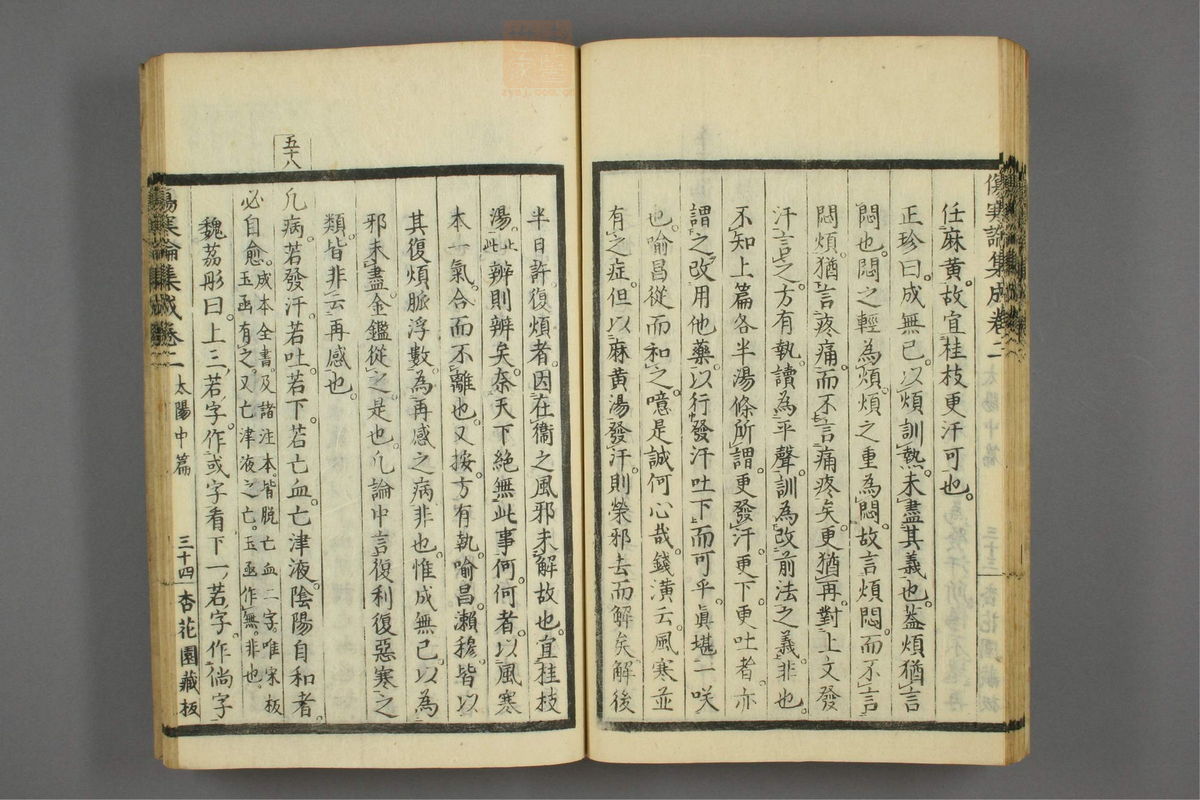 任麻黄。故宜桂枝更汗可也。
正珍曰。成無已。以煩訓熱。未盡其義也。蓋煩猶言
悶也。悶之輕為煩。煩之重為悶。故言煩悶。而不言
悶煩。猶言疼痛。而不言痛疼矣。更猶再。對上文發
汗言之。方有執讀為平聲。訓為改前法之義。非也。
不知上篇各半湯條所謂更發汗。更下。更吐者。亦
謂之改用他藥。以行發汗吐下。而可乎。眞堪一咲
也。喻昌從而和之。噫是誠何心哉。錢潢云。風寒並
有之症。但以麻黄湯發汗。則榮邪去而解矣。解後
半日許復煩者。因在衞之風邪未解故也。宜桂枝
湯。止此辨則辨矣。奈天下絶無此事何。何者。以風寒
本一氣。合而不離也。又按。方有執。喻昌。瀬穆。皆以
其復煩脈浮數。為再感之病。非也。惟成無已。以為
邪未盡。金鑑從之。是也。凡論中言復利復惡寒之
類。皆非云再感也。
五十八
凡病若發汗。若吐。若下。若亡血。亡津液。陰陽自和者。
必自愈。成本全書。及諸注本。皆脱亡血二字。唯宋板
玉函有之。又亡津液之亡。玉函作無。非也。
魏茘彤曰。上三若字。作或字看。下一若字。作倘字
傷寒論集成卷二 太陽中篇 三十四 杏花園藏板